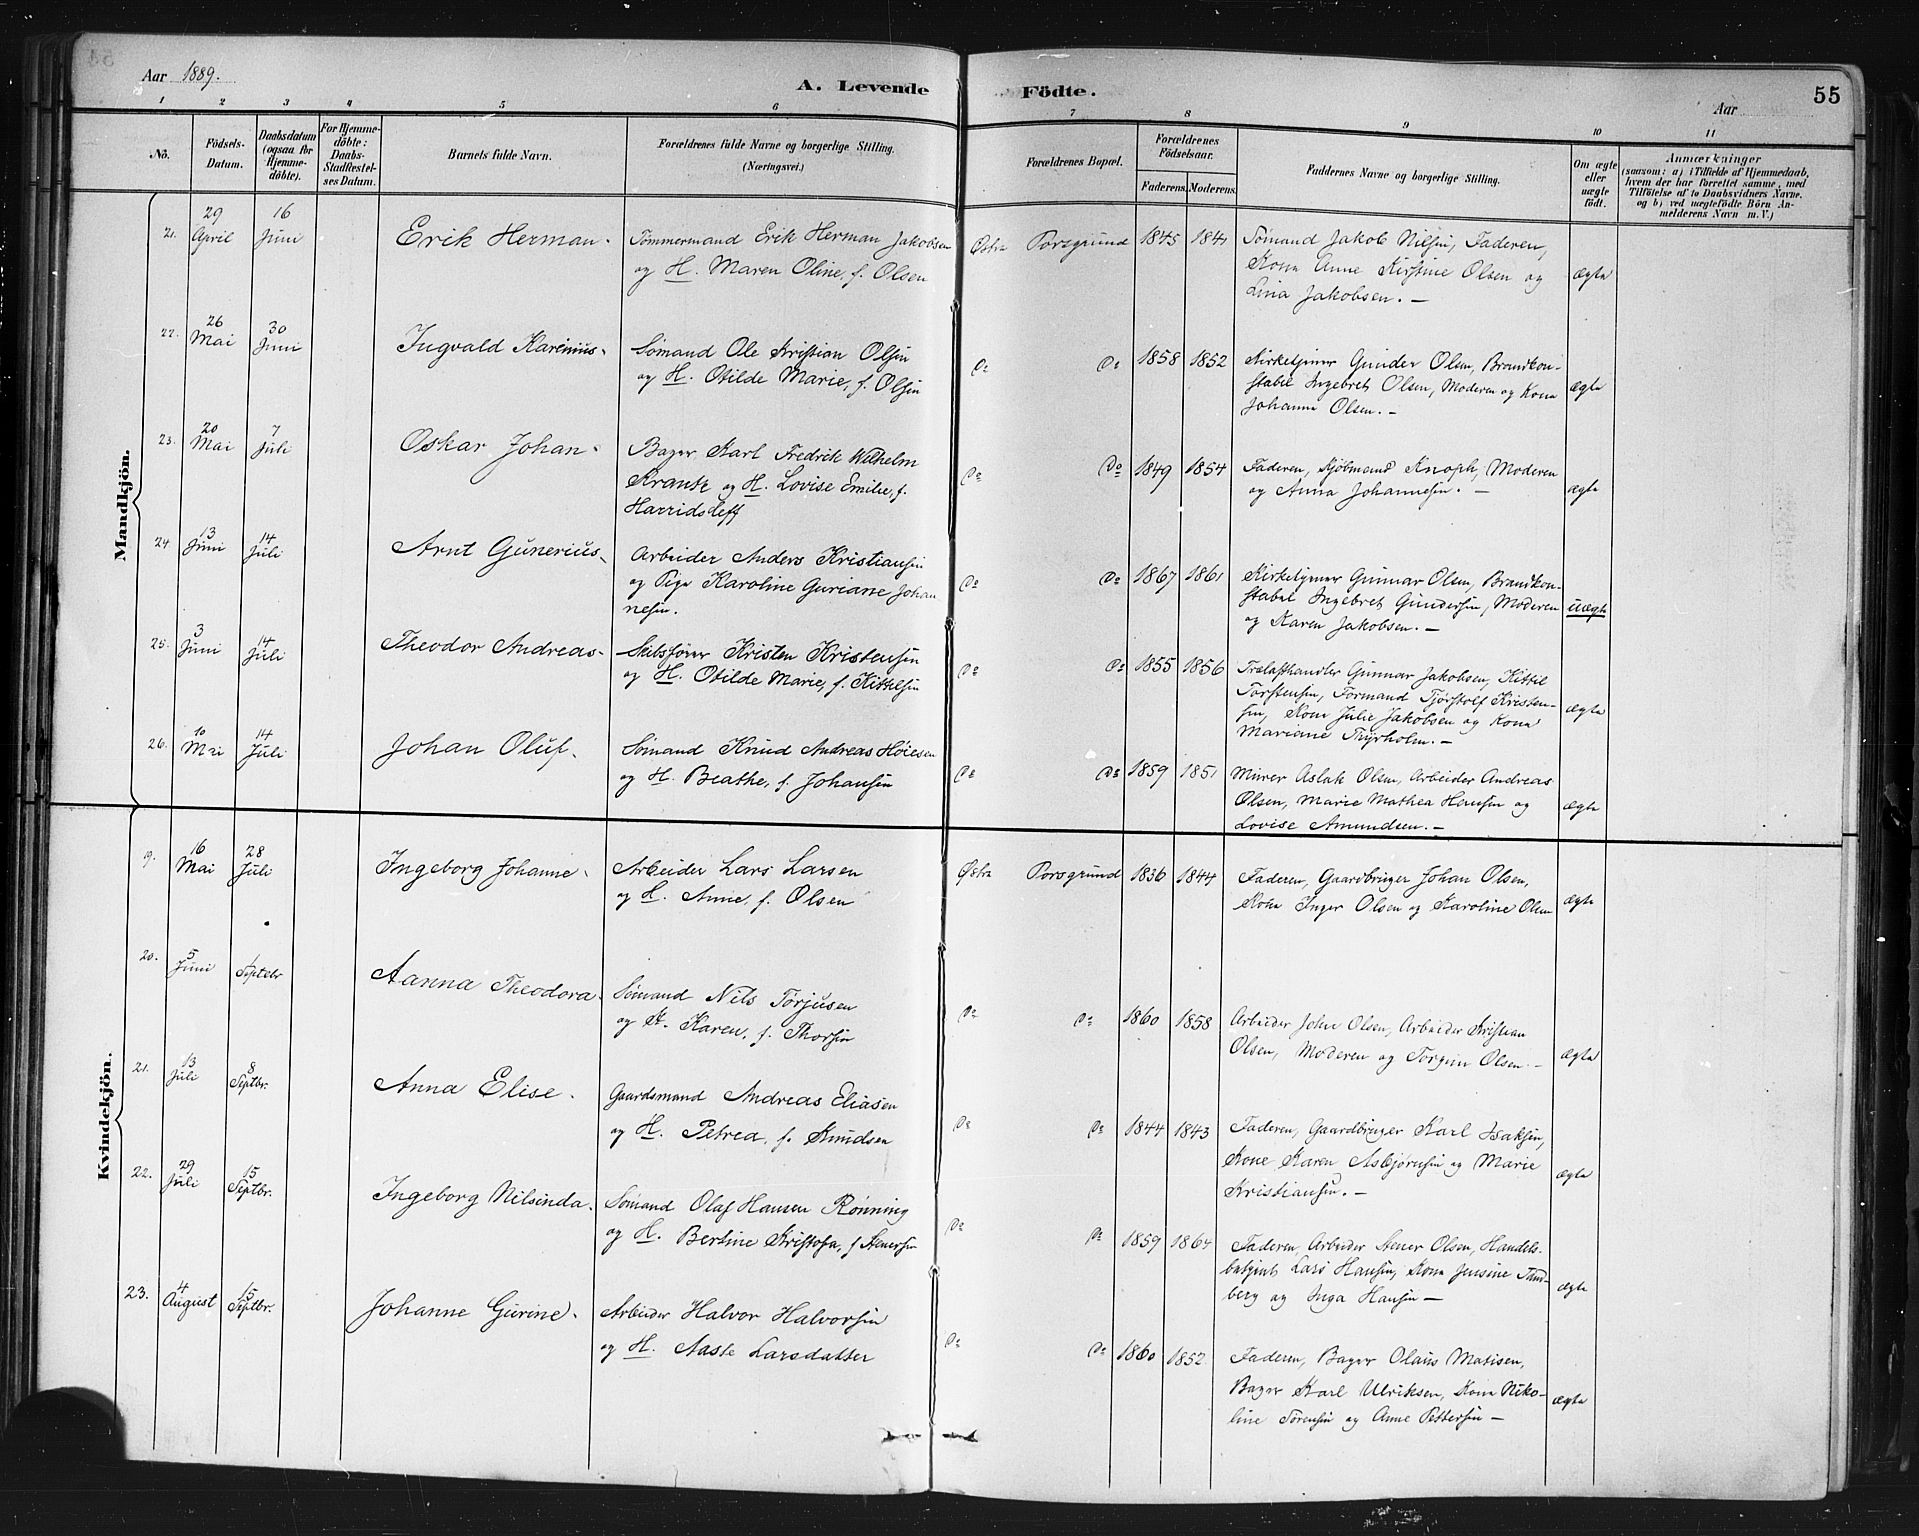 Aar 1889.
A. Levende Födte.
Aar
55
1 2 3 4 5 6 7 8 9 10 11
No.
Födsels-
Datum.
Daabsdatum
(ogsaa for
Hjemme-
döbte).
For Hjemme-
döbte:
Daabs-
Stadfæstel-
ses Datum.
Barnets fulde Navn.
Forældrenes fulde Navne og borgerlige Stilling.
(Næringsvei.)
Forældrenes Bopæl.
Forældrenes
Födselsaar.
Faderens. Moderens.
Faddernes Navne og borgerlige Stilling.
Om ægte
eller
uægte
födt.
Anmærkninger
(saasom: a) i Tilfælde af Hjemmedaab,
hvem der har forrettet samme, med
Tilföielse af to Daabsvidners Navne.
og b) ved uægtefödte Börn An-
melderens Navn m. V.)
Mandkjön.
21. 29 April 16 Juni Erik Herman. Tømmermand Erik Herman Jakobsen
og H. Maren Oline, f. Olsen
Østre Porsgrund 1845 1841 Sømand Jakob Nilsen, Faderen,
Kona Anne Kirstine Olsen og
Lina Jakobsen. —
ægte
22. 26 Mai 30 Juni Ingvald Karenius. Sømand Ole Kristian Olsen
og H. Otilde Marie, f. Olsen
Do Do 1858 1852 Kirketjener Gunder Olsen, Brandkon-
stabel Ingebret Olsen, Moderen og Kona
Johanna Olsen. —
ægte
23. 20 Mai 7 Juli Oskar Johan. Bager Karl Fredrik Wilhelm
Krantz og H. Lovise Emilie, f.
Harridsleff
Do Do 1849 1854 Faderen, Kjøbmand Knoph, Moderen
og Anna Johannesen. —
ægte
24 13 Juni 14 Juli Arnt Gunerius. Arbeider Anders Kristiansen
og Pige Karoline Guriane Johan
nesen.
Do Do 1867 1861 Kirketjener Gunnar Olsen, Brandkon-
stabel Ingebret Gundersen, Moderen
og Karen Jakobsen. —
uægte
25. 3 Juni 14 Juli Theodor Andreas. Skibsfører Kristen Kristensen
og H. Otilde Marie, f. Kittelsen
Do Do 1855 1856 Trælasthandler Gunnar Jakobsen, Kittil
Torstensen, Formand Tjøstolf Kristen-
sen, Kone Julie Jakobsen og Kone
Mariane Thyrholm. —
ægte
26. 10 Mai 14 Juli Johan Oluf. Sømand Knud Andreas Høiesen
og H. Beathe, f. Johansen
Do Do 1859 1851 Murer Aslak Olsen, Arbeider Andreas
Olsen, Marie Mathea Hansen og
Lovise Amundsen. —
ægte
Kvindekjön.
19. 16 Mai 28 Juli Ingeborg Johanne. Arbeider Lars Larsen
og H. Anne, f. Olsen
Østre Porsgrund 1836 1844 Faderen, Gaardbruger Johan Olsen,
Kone Inger Olsen og Karoline Olsen
ægte
20. 5 Juni 1 Septbr Aanna Theodora. Sømand Nils Torjusen
og H. Karen, f. Thorsen
Do Do 1860 1858 Arbeider John Olsen, Arbeider Kristian
Olsen, Moderen og Torgine Olsen. —
ægte
21. 13 Juli 8 Septbr. Anna Elise. Gaardsmand Andreas Eliasen
og H. Petrea, f. Knudsen
Do Do 1844 1843 Faderen, Gaardbruger Karl Isaksen,
Kone Karen Asbjørnsen og Marie
Kristiansen. —
ægte
22. 29 Juli 15 Septbr. Ingeborg Nilsinda. Sømand Olaf Hansen Rønning
og H. Bertine Kristofa, f Stenersen
Do Do 1859 1864 Faderen, Arbeider Stener Olsen, Handels-
betjent Lars Hansen, Kone Jensine Tand-
berg og Inga Hansen —
ægte
23. 4 August 15 Septbr. Johanne Gurine. Arbeider Halvor Halvorsen
og H. Aaste Larsdatter
Do Do 1860 1852. Faderen, Bager Olaus Matisen,
Bager Karl Ulriksen, Kone Niko-
line Sørensen og Anne Pettersen —
ægte